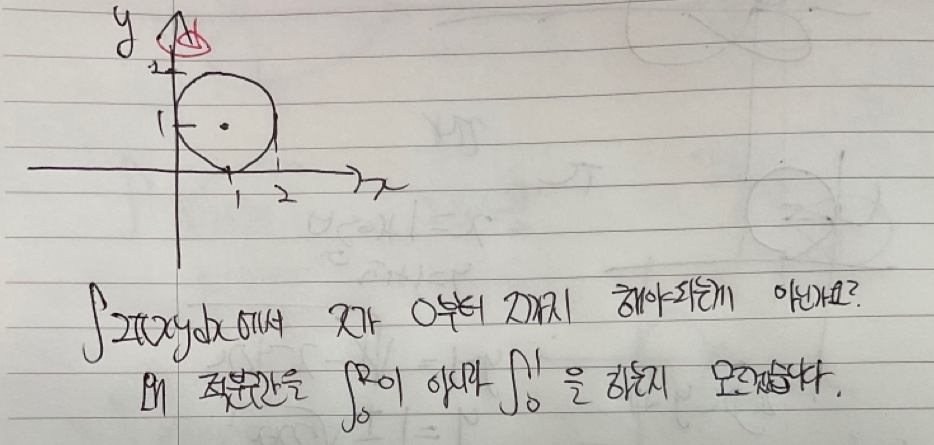 y
2
1
1 2 x
∫2πxydx에서 x가 0부터 2까지 해야되는게 아닌가요?
왜 적분구간을 ∫₀²이 아니라 ∫₀¹을 하는지 모르겠습니다.